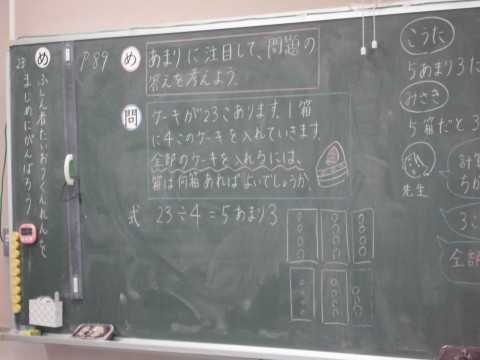 23
め
ふしん者たいおうくんれんを
まじめにがんばろう
P89
め
あまりに注目して、問題の
答えを考えよう。
問
ケーキが23こあります。1箱
に4このケーキを入れていきます。
全部のケーキを入れるには、
箱は何箱あればよいでしょうか。
式 23÷4=5あまり3
こうた
5あまり3だ
みさき
5箱だと3
先生
計算
ちか
3こ
全部